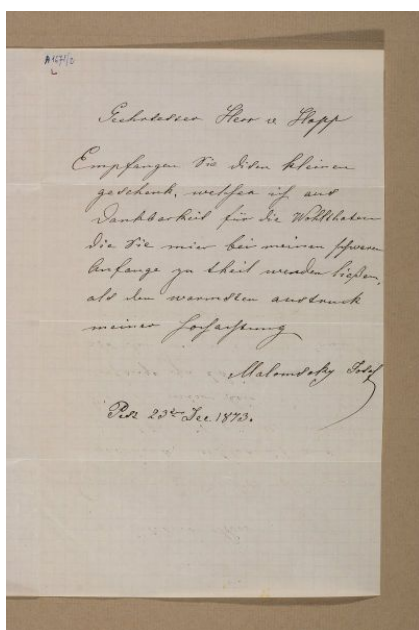 Geehrtester Herr v Hopp
Empfangen Sie disen kleinen
geschenk, welchen ich aus
Dankbarkeit für die Wohlthaten
die Sie mier bei meinen schweren
Anfange zu theil werden ließen,
als den warmsten austruck
meiner Hochachtung
Josef
Pest 23ten Dec 1873.